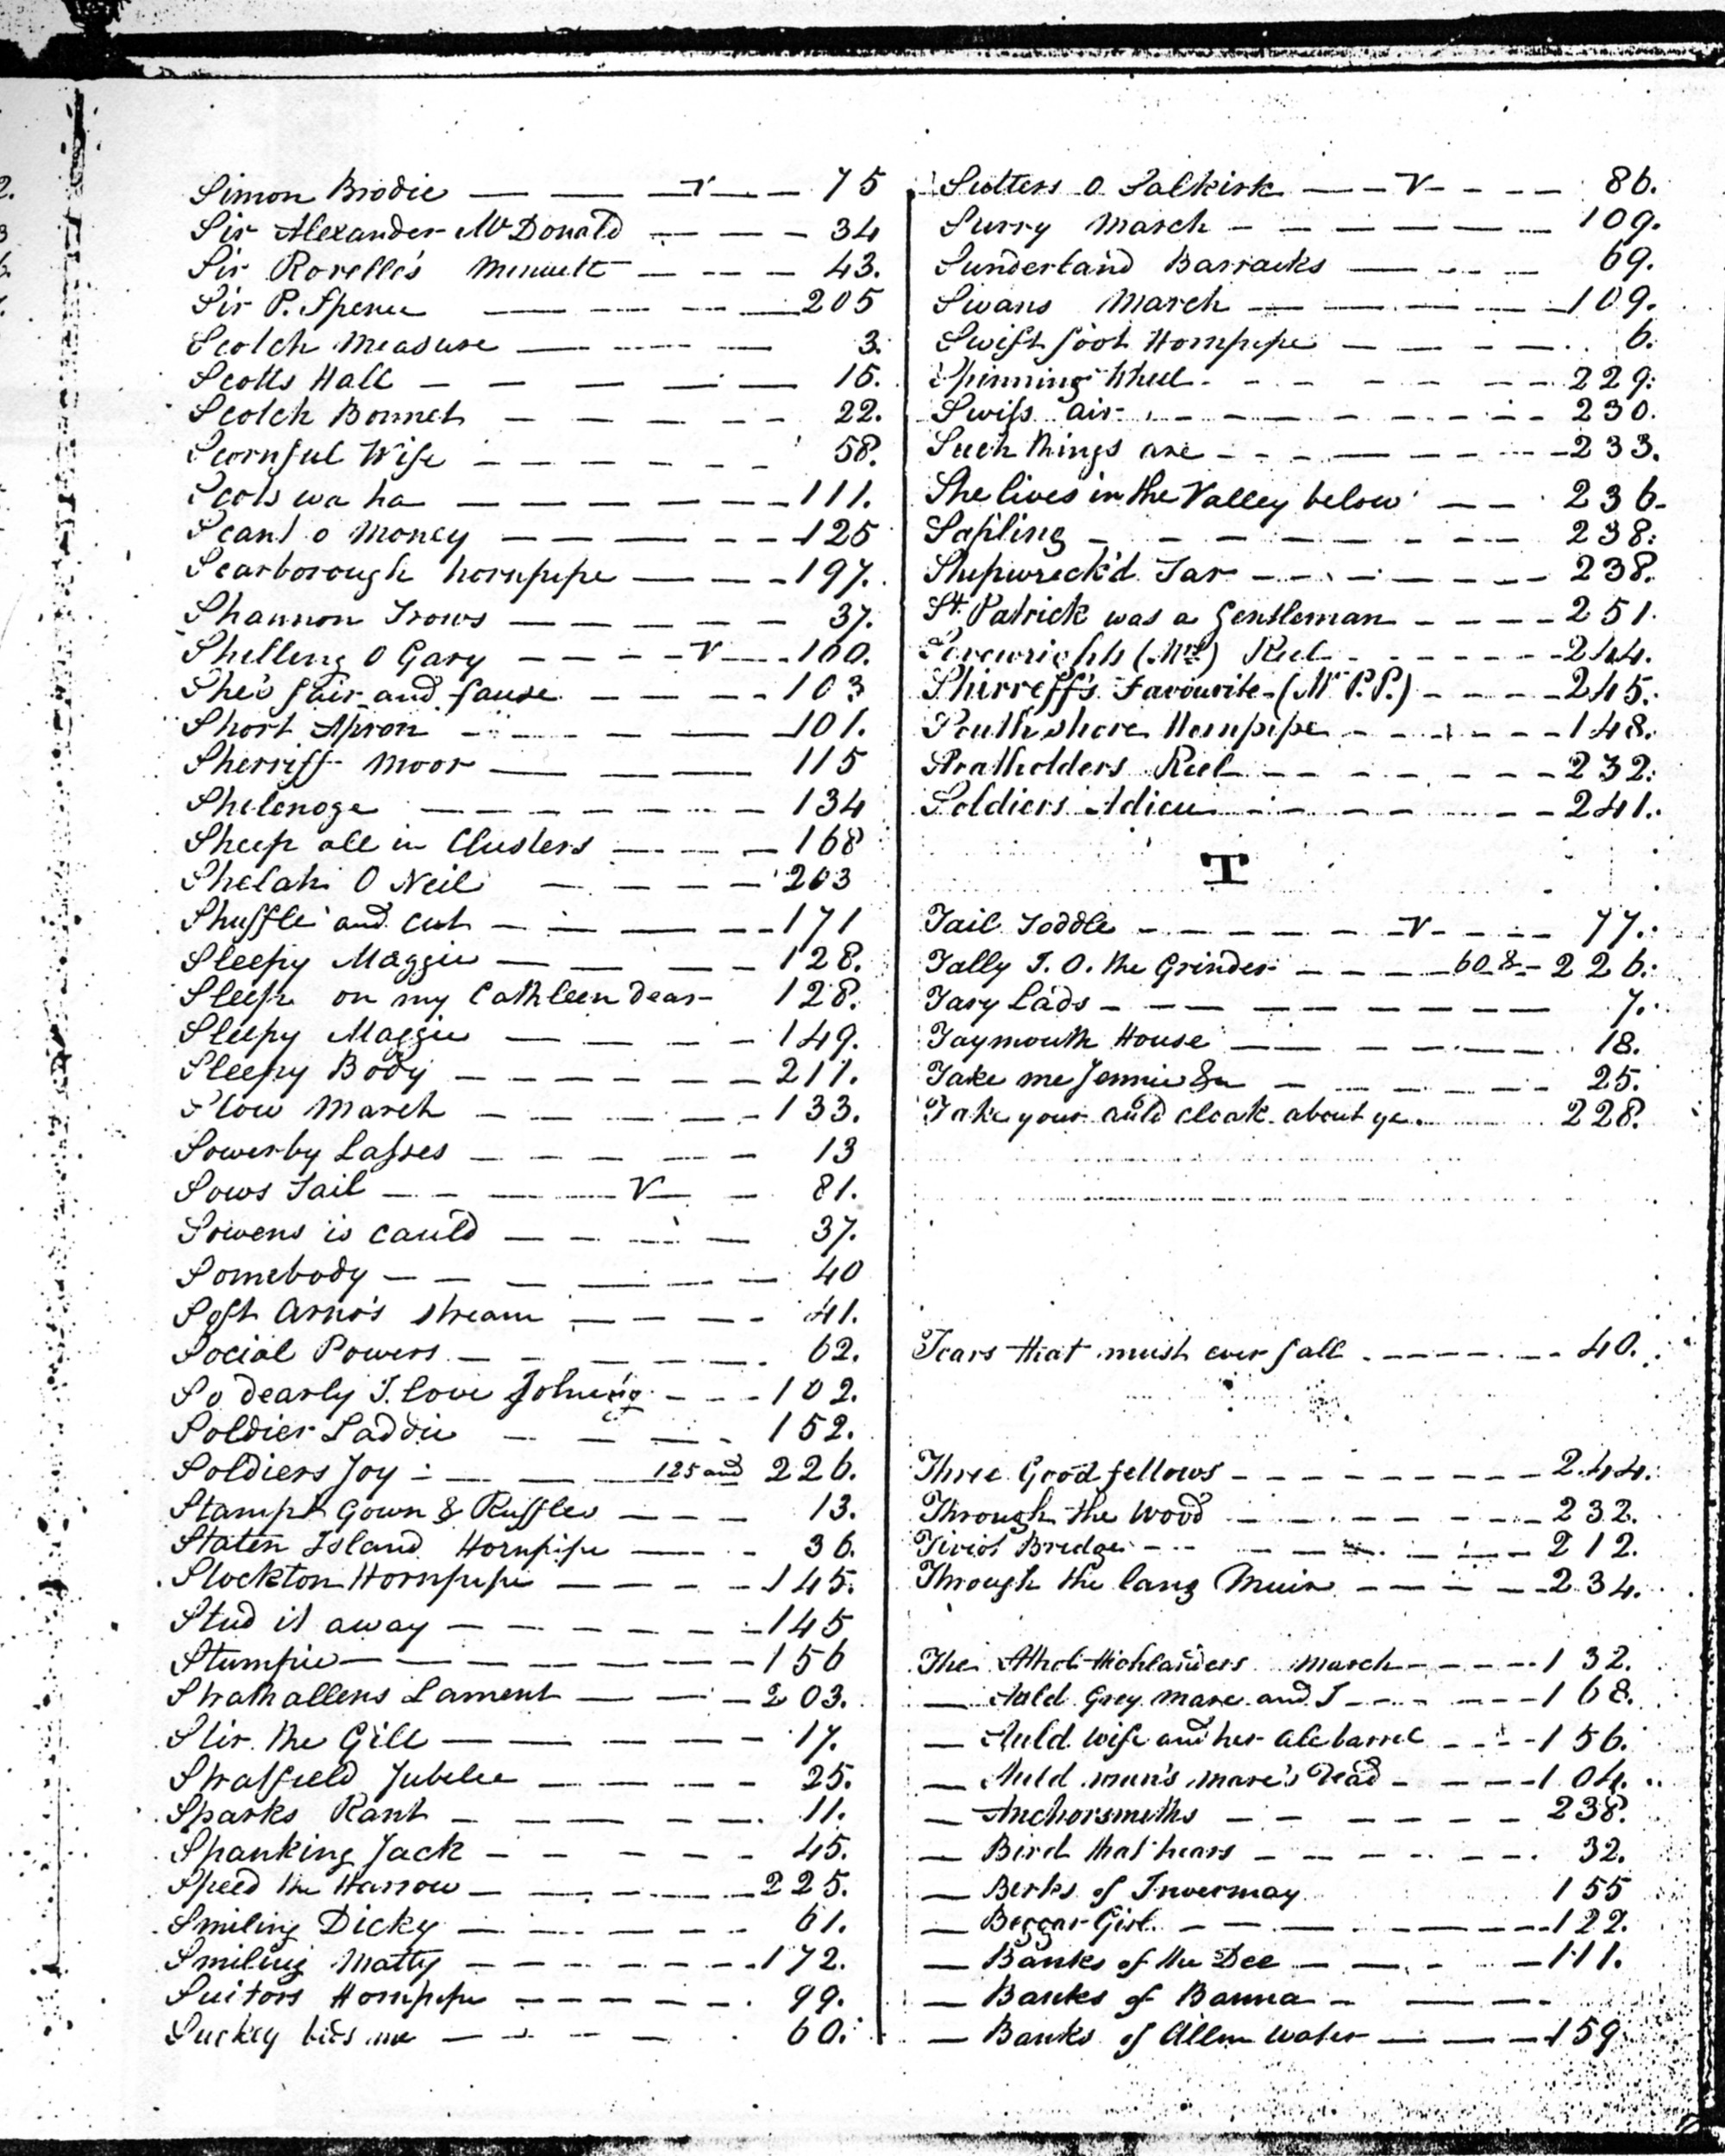 Simon Brodie — V — 75
Sir Alexander McDonald — 34
Sir Rovelle's Minuett — 43.
Sir P. Spence — 205
Scotch Measure — 3.
Scotts Hall — 15.
Scotch Bonnet — 22.
Scornful Wife — 58.
Scots wa ha — 111.
Scant o Money — 125
Scarborough hornpipe — 197.
Shannon Trows — 37.
Shelling O Gary — V — 100.
She's fair and fause — 103
Short Apron — 101.
Sherriff Moor — 115
Shelenoge — 134
Sheep all in Clusters — 168
Shelah O Neil — 203
Shuffle and cut — 171
Sleepy Maggie — 128.
Sleep on my Cathleen dear — 128.
Sleepy Maggie — 149.
Sleepy Body — 211.
Slow March — 133.
Sowerby Lasses — 13
Sows Tail — V — 81.
Sowens is cauld — 37.
Somebody — 40
Soft Arno's stream — 41.
Social Powers — 62.
So dearly I love Johnny — 102.
Soldier Laddie — 152.
Soldiers Joy — 125 and 226.
Stampt Gown & Ruffles — 13.
Staten Island Hornpipe — 36.
Stockton Hornpipe — 145.
Stud it away — 145
Stumpie — 156
Strathallens Lament — 203.
Stir the Gill — 17.
Stratfield Jubelee — 25.
Sparks Rant — 11.
Spanking Jack — 45.
Speed the Harrow — 225.
Smiling Dicky — 61.
Smiling Matty — 172.
Suitors Hornpipe — 99.
Suckey bids me — 60.
Sutters O Salkirk — V — 86.
Surry March — 109.
Sunderland Barracks — 69.
Swans March — 109.
Swift foot Hornpipe — 6.
Spinning Wheel — 229.
Swiss air — 230.
Such things are — 233.
She lives in the Valley below — 236
Sapling — 238.
Shipwreck'd Tar — 238.
St. Patrick was a Gentleman — 251.
(Mrs) Reel — 244.
Shirreff's Favourite (Mr P.P.) — 245.
South shore Hornpipe — 148.
Reel — 232.
Soldiers Adieu — 241.
T
Tail Toddle — V — 77.
Tally I. O. the Grinder — 60 & 226.
Tary Lads — 7.
Taymouth House — 18.
Take me Jennie &c — 25.
Take your auld cloak about ye — 228.
Tears that must ever fall — 40.
Three Good fellows — 244.
Through the Wood — 232.
Tiviot Bridge — 212.
Through the lang Muir — 234.
The Athol Highlanders March — 132.
— Auld Grey mare and I — 168.
— Auld wife and her ale barrel — 156.
— Auld man's mare's dead — 104.
— Anchorsmiths — 238.
— Bird that hears — 32.
— Berks of Invermay 155
— Beggar Girl — 122.
— Banks of the Dee — 111.
— Banks of Banna —
— Banks of Allen Water — 159